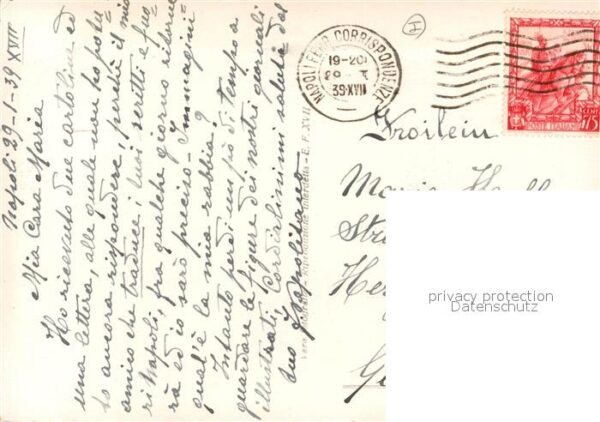 Napoli 29-1-39 XVII
Mia Cara Maria
Ho ricevuto due cartoline ed
una lettera, alle quale non ho potu-
to ancora rispondere, perché il mio
amico che traduce i tuoi scritti e fuo-
ri Napoli, fra qualche giorno ritorne
rà ed io sarò preciso. Immagini
qual'è la mia rabbia?
Intanto perdi un pò di tempo a
guardare le figure dei nostri giornali
illustrati. Cordialissimi saluti dal
tuo Napolitano
NAPOLI FERR. CORRISPONDENZE
19-20
39 XVII
I
POSTE ITALIANE
CENT 75
Froilein
Maria
privacy protection
Datenschutz